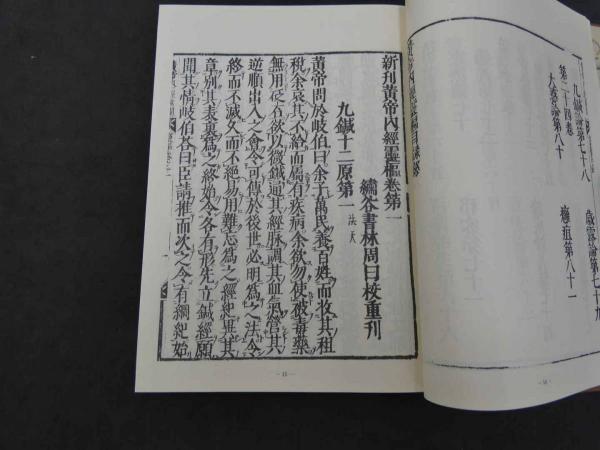 九鍼論第七十八　歲露論第七十九
第二十四卷
大惑論第八十　癰疽第八十一
新刊黃帝內經靈樞卷第一
繡谷書林周曰校重刊
九鍼十二原第一 法天
黃帝問於岐伯曰余子萬民養百姓而收其租
稅余哀其不給而屬有疾病余欲勿使被毒藥
無用砭石欲以微鍼通其經脉調其血氣營其
逆順出入之會令可傳於後世必明為之法令
終而不滅久而不絕易用難忘為之經紀異其
章別其表裏為之終始令各有形先立鍼經願
聞其情岐伯答曰臣請推而次之令有綱紀始